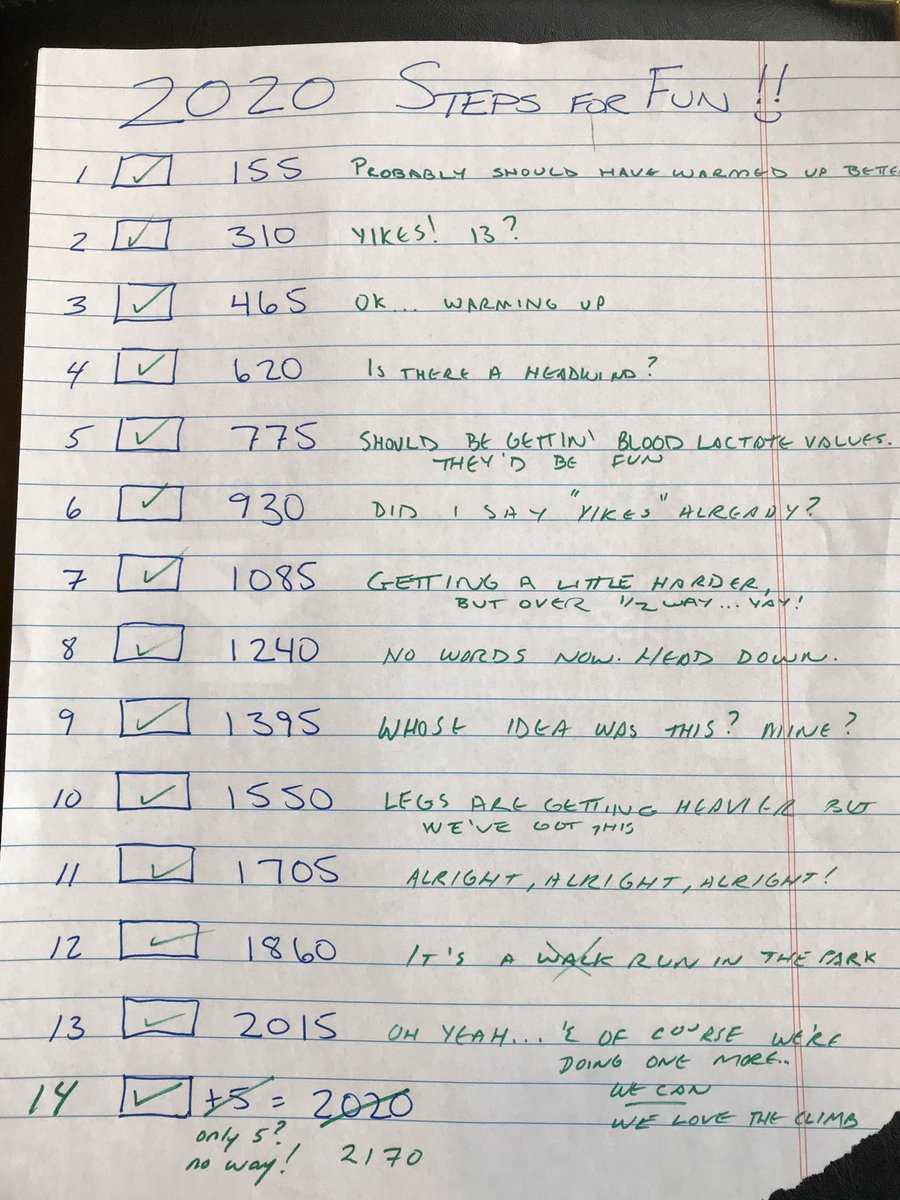 2020 STEPS FOR FUN!!
1 ✓ 155 PROBABLY SHOULD HAVE WARMED UP BETTE
2 ✓ 310 YIKES! 13?
3 ✓ 465 OK... WARMING UP
4 ✓ 620 IS THERE A HEADWIND?
5 ✓ 775 SHOULD BE GETTIN' BLOOD LACTATE VALUES.
THEY'D BE FUN
6 ✓ 930 DID I SAY "YIKES" ALREADY?
7 ✓ 1085 GETTING A LITTLE HARDER,
BUT OVER 1/2 WAY... YAY!
8 ✓ 1240 NO WORDS NOW. HEAD DOWN.
9 ✓ 1395 WHOSE IDEA WAS THIS? MINE?
10 ✓ 1550 LEGS ARE GETTING HEAVIER BUT
WE'VE GOT THIS
11 ✓ 1705 ALRIGHT, ALRIGHT, ALRIGHT!
12 ✓ 1860 IT'S A WALK RUN IN THE PARK
13 ✓ 2015 OH YEAH... & OF COURSE WE'RE
DOING ONE MORE..
14 ✓ +5 = 2020 WE CAN
WE LOVE THE CLIMB
only 5?
no way! 2170